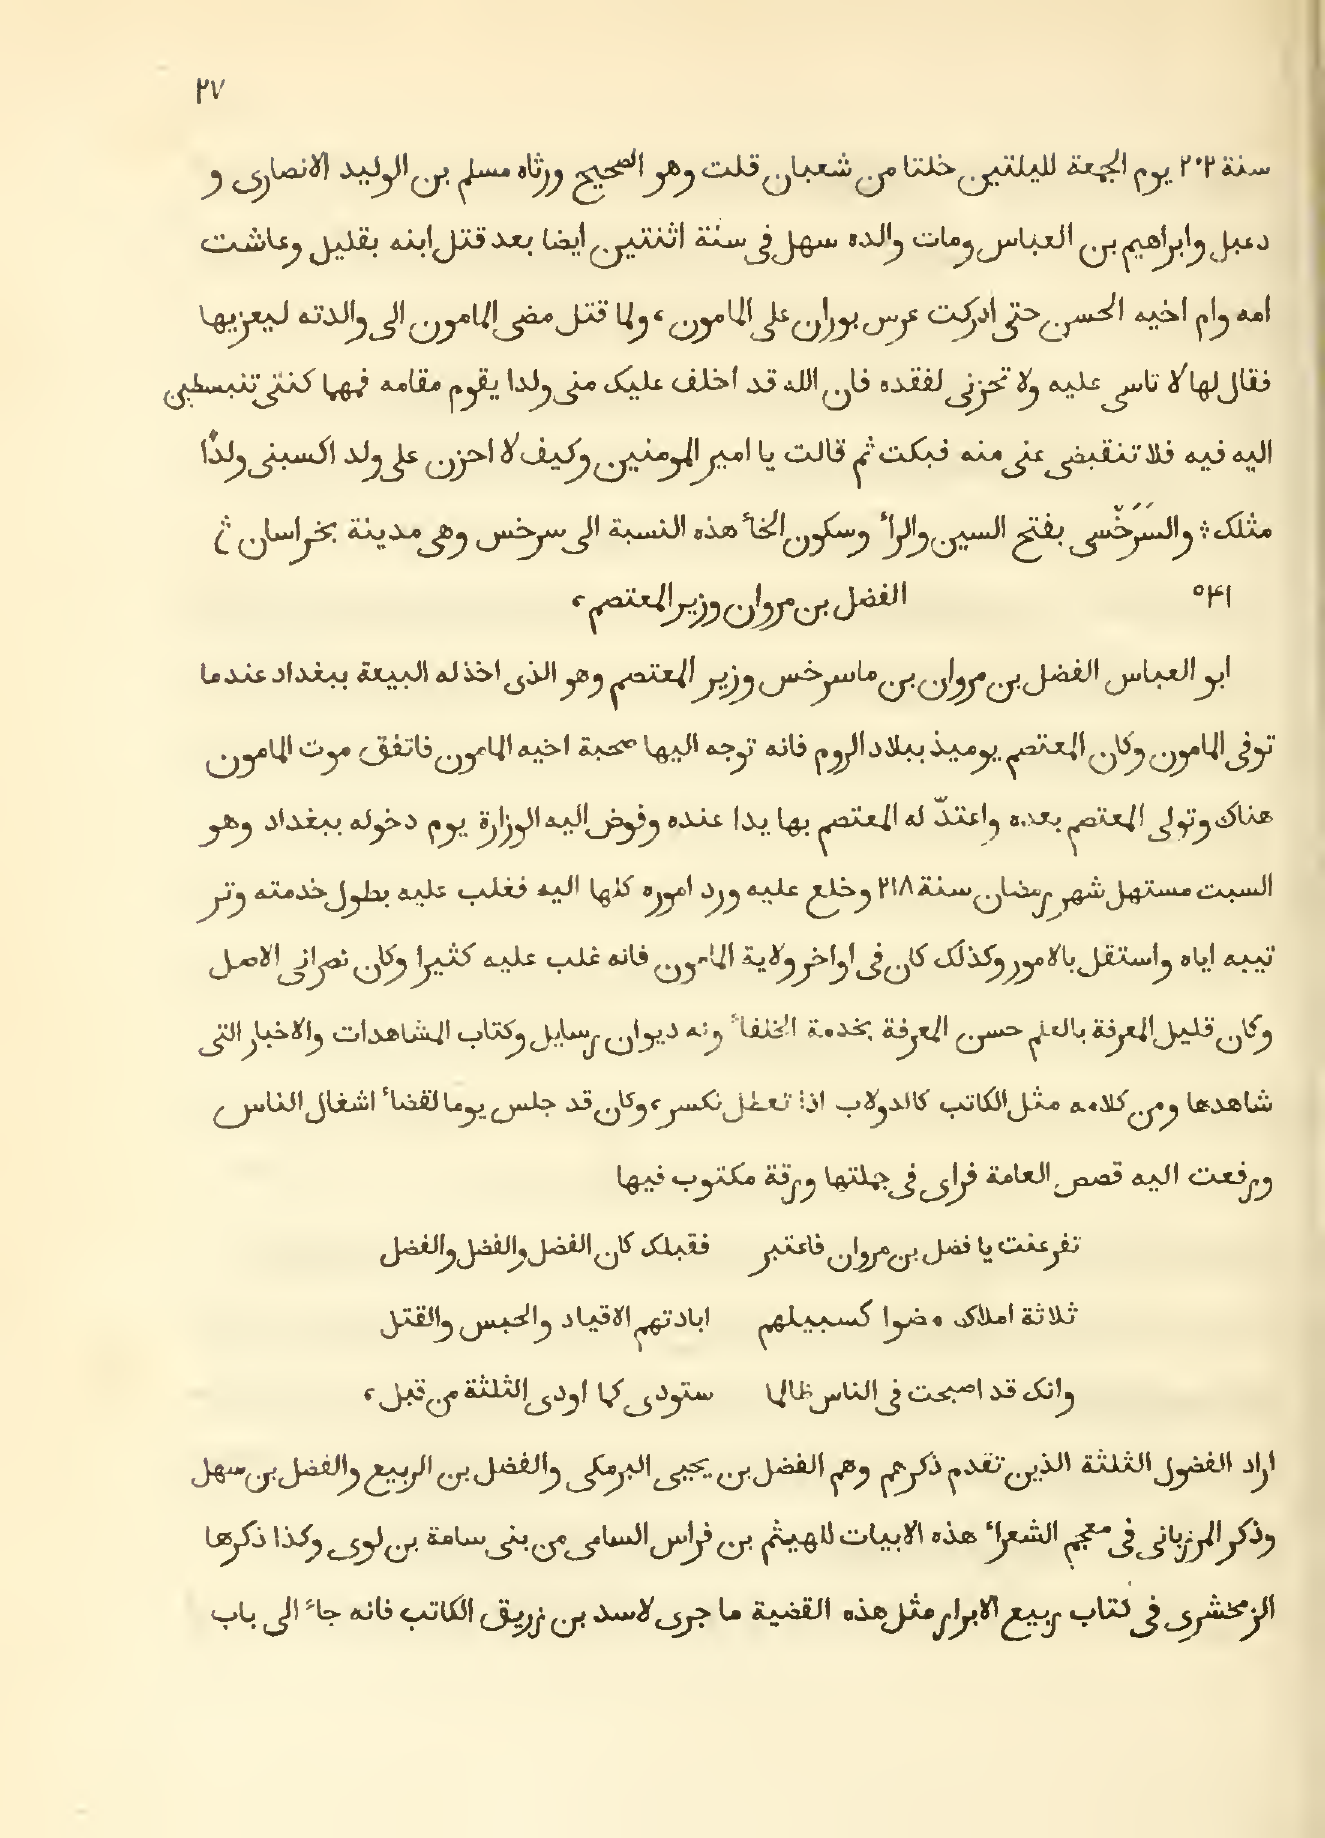 ٢٧
سنة ٢٠٢ يوم الجمعة لليلتين خلتا من شعبان قلت وهو الصحيح ورثاه مسلم بن الوليد الانصارى و
دعبل وابراهيم بن العباس ومات والده سهل فى سنة اثنتين ايضا بعد قتل ابنه بقليل وعاشت
امه وام اخيه الحسن حتى ادركت عرس بوران على المامون، ولما قتل مضى المامون الى والدته ليعزيها
فقال لها لا تاسى عليه ولا تحزنى لفقده فان الله قد اخلف عليك منى ولدا يقوم مقامه فمهما كنتى تنبسطين
اليه فيه فلا تنقبضى عنى منه فبكت ثم قالت يا امير المومنين وكيف لا احزن على ولد اكسبنى ولدًا
مثلك ؞ والسَرَخّسى بفتح السين والراٴ وسكون الخاٴ هذه النسبة الى سرخس وهى مدينة بخراسان ؞
٥٤١ الفضل بن مروان وزير المعتصم،
ابو العباس الفضل بن مروان بن ماسرخس وزير المعتصم وهو الذى اخذ له البيعة ببغداد عندما
توفى المامون وكان المعتصم يوميذ ببلاد الروم فانه توجه اليها صحبة اخيه المامون فاتفق موت المامون
هناك وتولى المعتصم بعده واعتدّ له المعتصم بها يدا عنده وفوض اليه الوزارة يوم دخوله ببغداد وهو
السبت مستهل شهر رمضان سنة ٢١٨ وخلع عليه ورد اموره كلها اليه فغلب عليه بطول خدمته وتر
تيبه اياه واستقل بالامور وكذلك كان فى اواخر ولاية المامون فانه غلب عليه كثيرا وكان نصرانى الاصل
وكان قليل المعرفة بالعلم حسن المعرفة بخدمة الخلفاٴ وله ديوان رسايل وكتاب المشاهدات والاخبار التى
شاهدها ومن كلامه مثل الكاتب كالدولاب اذا تعطل تكسر، وكان قد جلس يوما لقضاٴ اشغال الناس
ورفعت اليه قصص العامة فراى فى جملتها ورقة مكتوب فيها
تفرعنت يا فضل بن مروان فاعتبر فقبلك كان الفضل والفضل والفضل
ثلاثة املاك مضوا كسبيلهم ابادتهم الاقياد والحبس والقتل
وانك قد اصبحت فى الناس ظالما ستودى كما اودى الثلثة من قبل،
اراد الفضول الثلثة الذين تقدم ذكرهم وهم الفضل بن يحيى البرمكى والفضل بن الربيع والفضل بن سهل
وذكر المرزبانى فى معجم الشعراٴ هذه الابيات للهيثم بن فراس السامى من بنى سامة بن لوى وكذا ذكرها
الزمخشرى فى كتاب ربيع الابرار مثل هذه القضية ما جرى لاسد بن زريق الكاتب فانه جاٴ الى باب